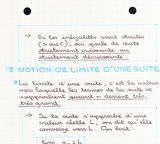 → Si les inégalités sont strictes
(> ou <), on parle de suite
strictement croissante ou
strictement décroissante.
3 NOTION DE LIMITE D'UNE SUITE
La limite d'une suite, c'est la valeur
vers laquelle les termes de la suite se
rapprochent quand n devient très,
très grand.
→ Si la suite s'approche d'une
valeur réelle L, on dit qu'elle
converge vers L. On écrit :
lim